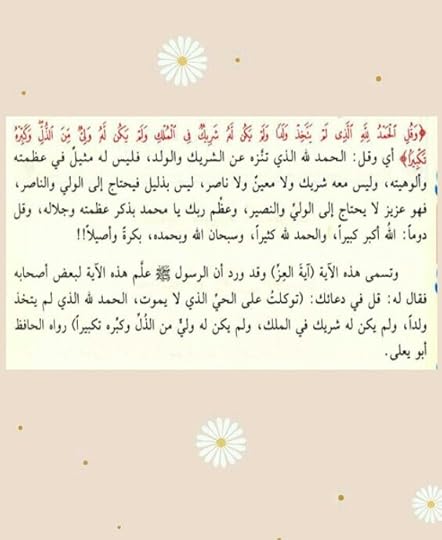 ﴿وَقُلِ ٱلْحَمْدُ لِلَّهِ ٱلَّذِى لَمْ يَتَّخِذْ وَلَدًا وَلَمْ يَكُن لَّهُۥ شَرِيكٌ فِى ٱلْمُلْكِ وَلَمْ يَكُن لَّهُۥ وَلِىٌّ مِّنَ ٱلذُّلِّ وَكَبِّرْهُ
تَكْبِيرًۢا﴾ أي وقل: الحمد لله الذي تنزّه عن الشريك والولد، فليس له مثيلٌ في عظمته
وألوهيته، وليس معه شريك ولا معينٌ ولا ناصر، ليس بذليل فيحتاج إلى الولي والناصر،
فهو عزيز لا يحتاج إلى الوليِّ والنصير، وعظِّم ربك يا محمد بذكر عظمته وجلاله، وقل
دوماً: اللهُ أكبر كبيراً، والحمد لله كثيراً، وسبحان الله وبحمده، بكرةً وأصيلاً!!
وتسمى هذه الآية (آيةَ العِزِّ) وقد ورد أن الرسول ﷺ علَّم هذه الآية لبعض أصحابه
فقال له: قل في دعائك: (توكلتُ على الحيِّ الذي لا يموت، الحمد لله الذي لم يتخذ
ولداً، ولم يكن له شريك في الملك، ولم يكن له وليٌّ من الذُلِّ وكبِّره تكبيراً) رواه الحافظ
أبو يعلى.